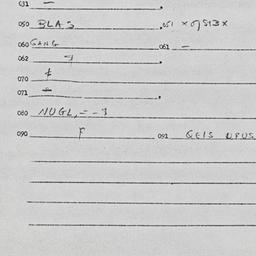 031 —
050 BLAS 051
060 GANG 061 —
062
070
071 —
080 NUGL, = -3
090 F 091 GEIS OPUS